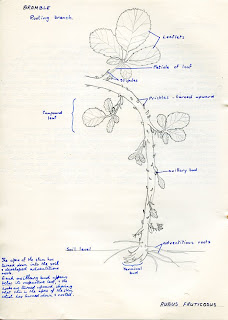 BRAMBLE
Rooting branch
Leaflets
Petiole of leaf
Stipules
Prickles - curved upward
Compound
leaf
axillary bud
Soil level
adventitious roots
Terminal
bud
The apex of the stem has
turned down into the soil
& developed adventitious
roots.
Each axillary bud appears
below its respective leaf, & the
hooks are turned upward, showing
that this is the apex of the stem
which has turned down & rooted.
RUBUS FRUTICOSUS